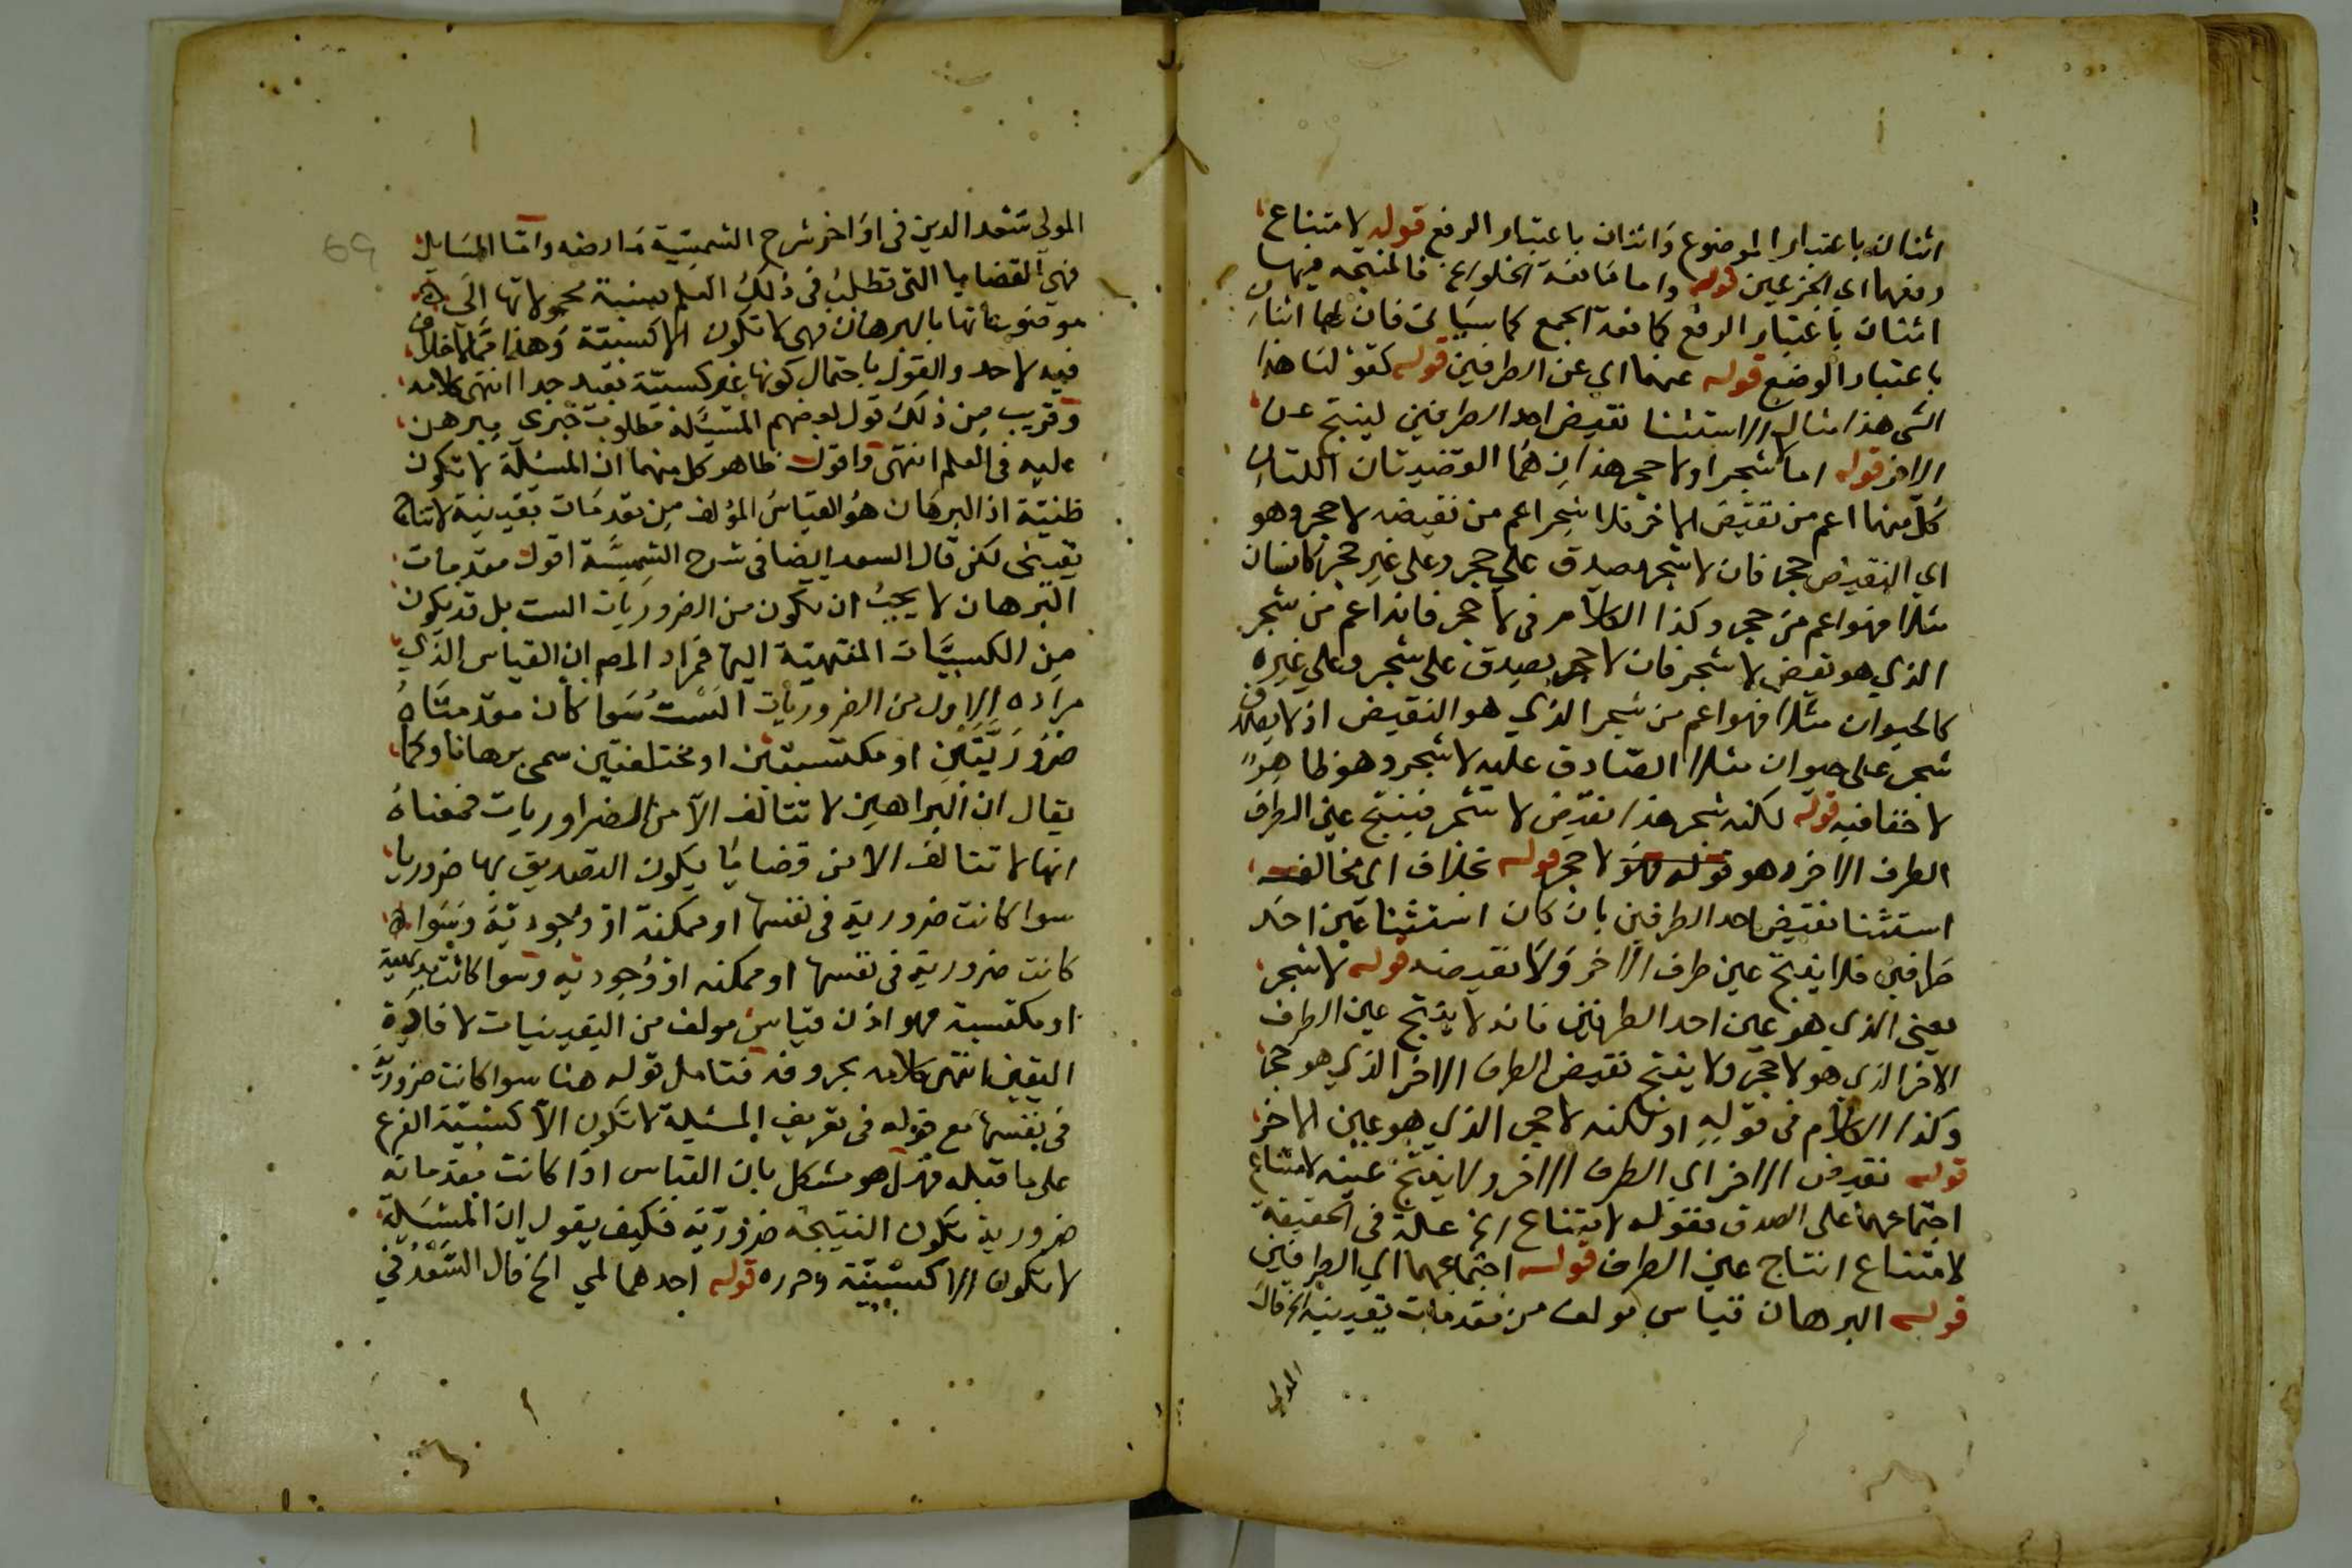 اثنان باعتبار الموضوع واثنان باعتبار الرفع قوله لامتناع
رفعهما اي الجزءين قوله واما مانعة الخلو الخ فالمنتجه فيها
اثنان باعتبار الرفع كمانعة الجمع كما سياتى فان لها اثنان
باعتبار الوضع قوله عنهما اي عن الطرفين قوله كقولنا هذا
الشى هذا مثال الاستثنا نقيض احد الطرفين لينتج عين
الاخر قوله اما لا شجر او لا حجر هذان هما القضيتان اللتان
كل منهما اعم من نقيض الاخر فلا شجر اعم من نقيضه لا حجر وهو
اي النقيض حجر فان لا شجر يصدق على حجر وعلى غير حجر كانسان
مثلا فهو اعم من حجر وكذا الكلام فى لا حجر فانه اعم من شجر
الذي هو نقيض لا شجر فان لا حجر يصدق على شجر وعلى غيره
كالحيوان مثلا فهو اعم من شجر الذي هو النقيض اذ لا يصدق
شجر على حيوان مثلا الصادق عليه لا شجر وهو ظاهر
لا خفا فيه قوله لكنه شجر هذا نقيض لا شجر فينتج عين الطرف
الطرف الاخر وهو قوله فلا لا حجر قوله بخلاف اي مخالف
استثنا نقيض احد الطرفين بان كان استثنا عين احد
طرفين فلا ينتج عين طرف الاخر ولا نقيضه قوله لا شجر
يعنى الذي هو عين احد الطرفين فانه لا ينتج عين الطرف
الاخر الذي هو لا حجر ولا ينتج نقيض الطرف الاخر الذي هو حجر
وكذا الكلام فى قوله او لكنه لا حجر الذي هو عين الاخر
قوله نقيض الاخر اي الطرف الاخر ولا ينتج عينه لامتناع
اجتماعهما على الصدق فقوله لامتناع الخ علة فى الحقيقة
لامتناع انتاج عين الطرف قوله اجتماعهما اي الطرفين
قوله البرهان قياس مولف من مقدمات يقينية الخ قال
المولى
المولى سعد الدين فى اواخر شرح الشمسية ما نصه واما المسايل
فهي القضايا التى تطلب فى ذلك العلم نسبة محمولاتها الى
موضوعاتها بالبرهان فهى لا تكون الا كسبية وهذا مما لا خلاف
فيه لاحد والقول باحتمال كونها غير كسبية بعيد جدا انتهى كلامه
وقريب من ذلك قول بعضهم المسئلة مطلوب خبرى يبرهن
عليه فى العلم انتهى واقول ظاهر كل منهما ان المسئلة لا تكون
ظنية اذ البرهان هو القياس المؤلف من مقدمات يقينية لانتاج
يقينى لكن قال السعد ايضا فى شرح الشمسية اقول مقدمات
البرهان لا يجب ان تكون من الضروريات الست بل قد يكون
من الكسبيات المنتهية اليها فمراد المص ان القياس الذي
مراده الاول من الضروريات الست سوا كان مقدمتاه
ضروريتين او مكتسبتين او مختلفتين سمى برهانا وكما
يقال ان البراهين لا تتالف الا من الضراوريات فمعناه
انها لا تتالف الا من قضايا يكون التصديق بها ضروريا
سوا كانت ضرورية فى نفسها او ممكنة او وجودية وسوا
كانت ضرورية فى نفسها او ممكنه او وجوديه وسوا كانت بديهية
او مكتسبة فهو اذن قياس مولف من اليقينيات لافادة
اليقين انتهى كلامه بحروفه فتامل قوله هنا سوا كانت ضرورية
فى نفسها مع قوله فى تعريف المسئلة لا تكون الا كسبية الفرع
على ما قبله فهل هو مشكل بان القياس اذا كانت مقدماته
ضرورية تكون النتيجة ضرورية فكيف يقول ان المسئلة
لا تكون الا كسبية وحرره قوله احدهما لمي الخ قال السعد فى